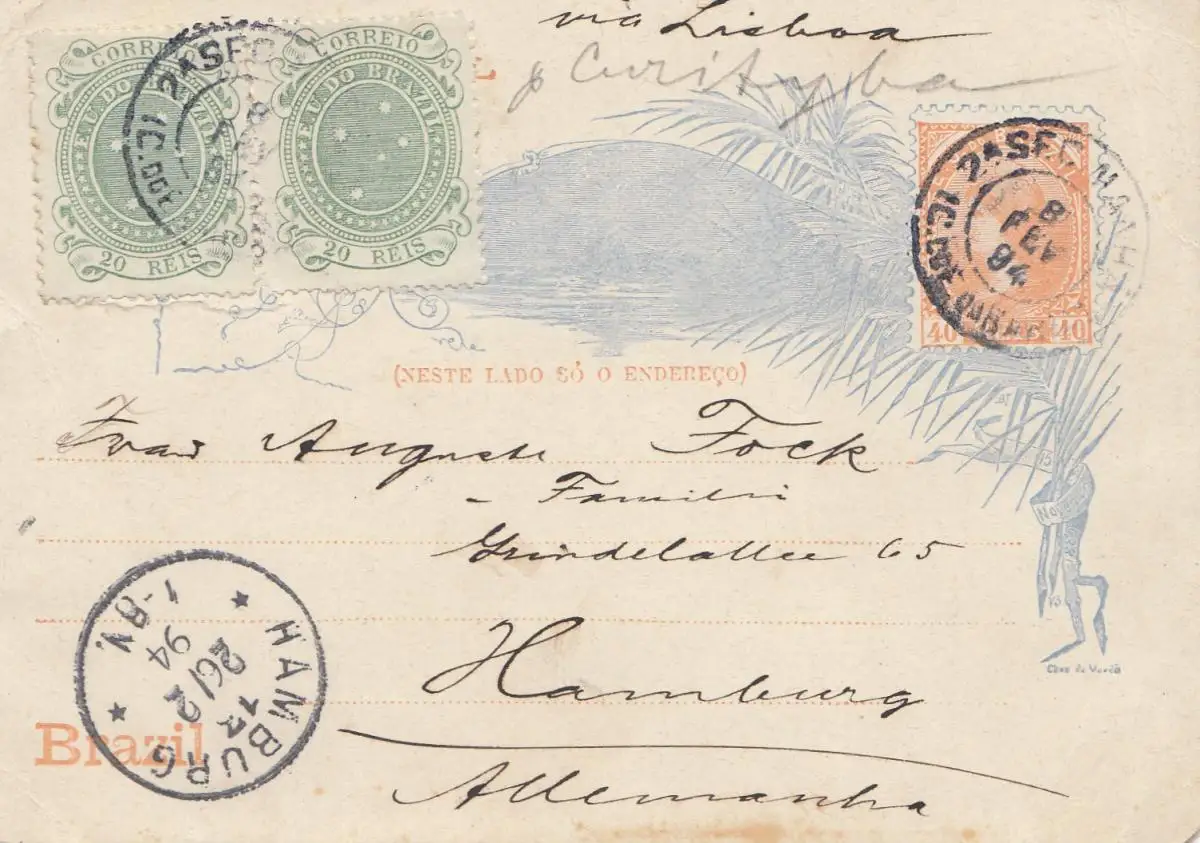 via Lisboa
p Curityba
CORREIO
E. E. U. U. DO BRAZIL
20 REIS
CORREIO
E. E. U. U. DO BRAZIL
20 REIS
2ª SEC
2ª SEC MANHÃ
8
FEV
94
40 40
(NESTE LADO SÓ O ENDEREÇO)
Frau Auguste Fock
- Familie
Grindelallee 65
15
Hamburg
Allemanha
HAMBURG
13
26/2
94
1-8V.
Brazil